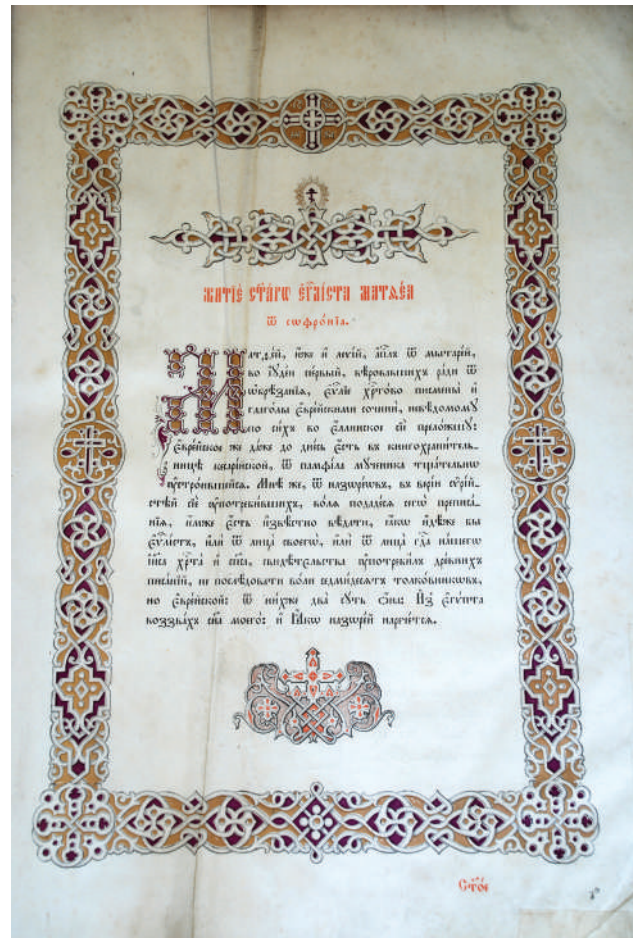 житїѐ ст҃а́гѡ є҆ѵⷢ҇лі́ста матѳе́а
ѿ сѡфро́нїа.
Матѳе́й, и҆́же и҆ леѵі́й, а҆пⷭ҇лъ ѿ мытаре́й,
во і҆ꙋде́и пе́рвый, вѣ́ровавшихъ ра́ди ѿ
ѡ҆брѣ́занїѧ, є҆ѵⷢ҇лїе хрⷭ҇то́во писмены̀ и҆
глаго́лы є҆вре́йскими сочинѝ, невѣ́домомꙋ
по си́хъ во є҆́ллинское сїѐ преложи́вшꙋ:
є҆вре́йское же да́же до дне́сь є҆́сть въ книгохрани́тель-
ницѣ кесарі́йской, ѿ памфі́ла мꙋ́ченика тща́тельнѡ
ᲂу҆стро́ившейсѧ. Мнѣ́ же, ѿ назѡрє́ѡвъ, въ ве́рїи сѷрі́й-
стѣй сїѐ ᲂу҆потреби́вшихъ, во́лѧ подаде́сѧ сегѡ̀ преписа́-
нїѧ, и҆́мже є҆́сть и҆звѣ́стно вѣ́дати, ꙗ҆́кѡ и҆дѣ́же бы
є҆ѵⷢ҇лі́стъ, и҆лѝ ѿ лица̀ своегѡ̀, и҆лѝ ѿ лица̀ гдⷭ҇а на́шегѡ
і҆и҃са хрⷭ҇та̀ и҆ сп҃са, свидѣ́тельства ᲂу҆потреби́лъ дре́внихъ
писа́нїй, не послѣ́довати во́ли седми́десѧтъ толко́вникѡвъ,
но є҆вре́йской: ѿ ни́хже два̀ сꙋ́ть ѻ҆́на: И҆з̾ є҆гѵ́пта
воззва́хъ сн҃а моего̀: и҆ Ꙗ҆́кѡ назѡре́й нарече́тсѧ.
Ст҃о́е